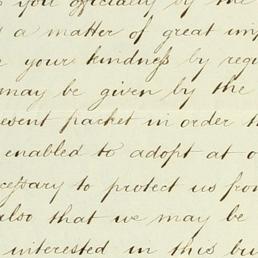 you officially by the
a matter of great imp
your kindness by requ
may be given by the
esent packet in order th
enabled to adopt at o
cessary to protect us from
also that we may be
interested in this bu